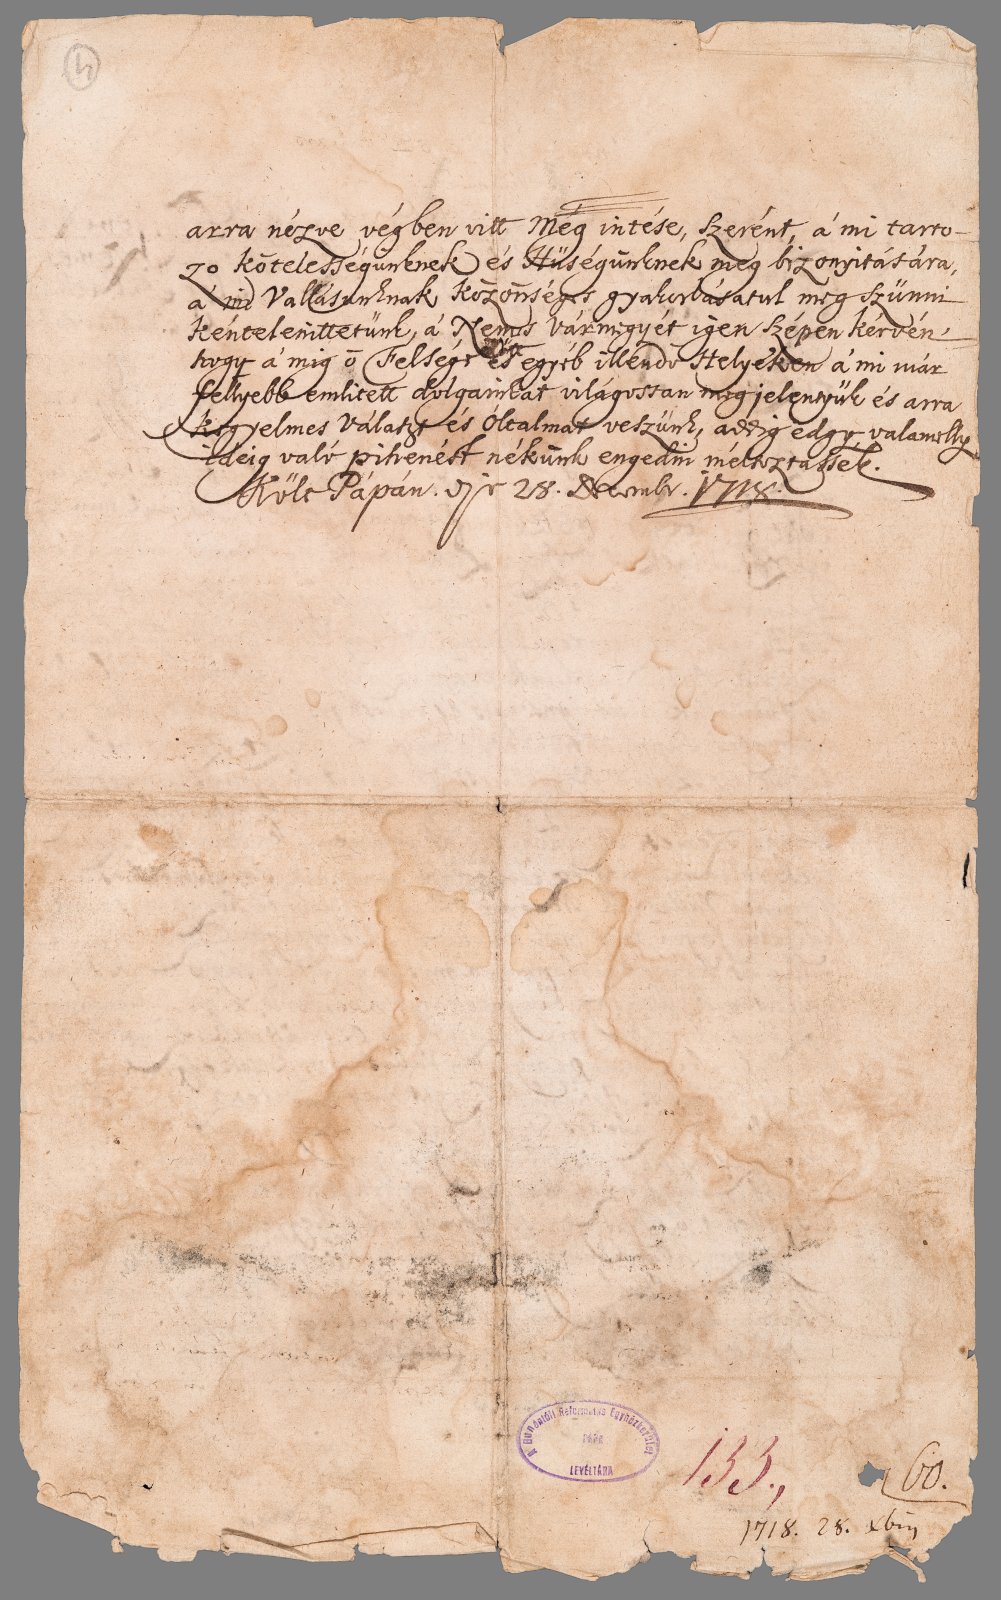 4
arra nézve végben vitt Meg intése, szerént, á mi tarto-
zo kötelességünknek és Hüségünknek meg bizonyitására,
á mi Vallásunknak közönséges gyakorlásatul meg szünni
kéntelenittetünk, á Nemes Vármegyét igen szépen kérvén
hogy á mig ö Felsége és egyéb illendö Helyekben á mi már
fellyebb emlitett dolgainkat világossan meg jelentyük és arra
kegyelmes Választ és Óltalmat veszünk, addig edgy valamelly
ideig való pihenést nékünk engedni méltoztassék.
Költ Pápán. die 28. Decembr. 1718.
A Dunántúli Református Egyházkerület
PÁPA
LEVÉLTÁRA
133.,
60.
1718. 28. xbris